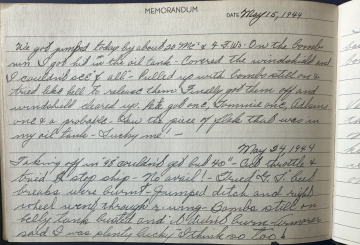 MEMORANDUM
DATE May 15, 1944
We got jumped today by about 20 Me's & 4 FWs. On the bomb
run I got hit in the oil tank - Covered the windshield and
I couldn't see & all - Pulled up with bombs still on &
tried like hell to release them. Finally got them off and
windshield cleared up. got one, Commie one, Adkins
one & a probable. Saw the piece of flak that was in
my oil tank - Lucky me! -
May 24 1944
Taking off in 43 couldn't get but 40" - Cut throttle &
tried to stop ship - No avail! - Tried G. L. but
breaks were burnt - Jumped ditch and right
wheel went through r. wing - Bombs still on
belly tank busted and it didn't burn -
said I was plenty lucky "I think so too!